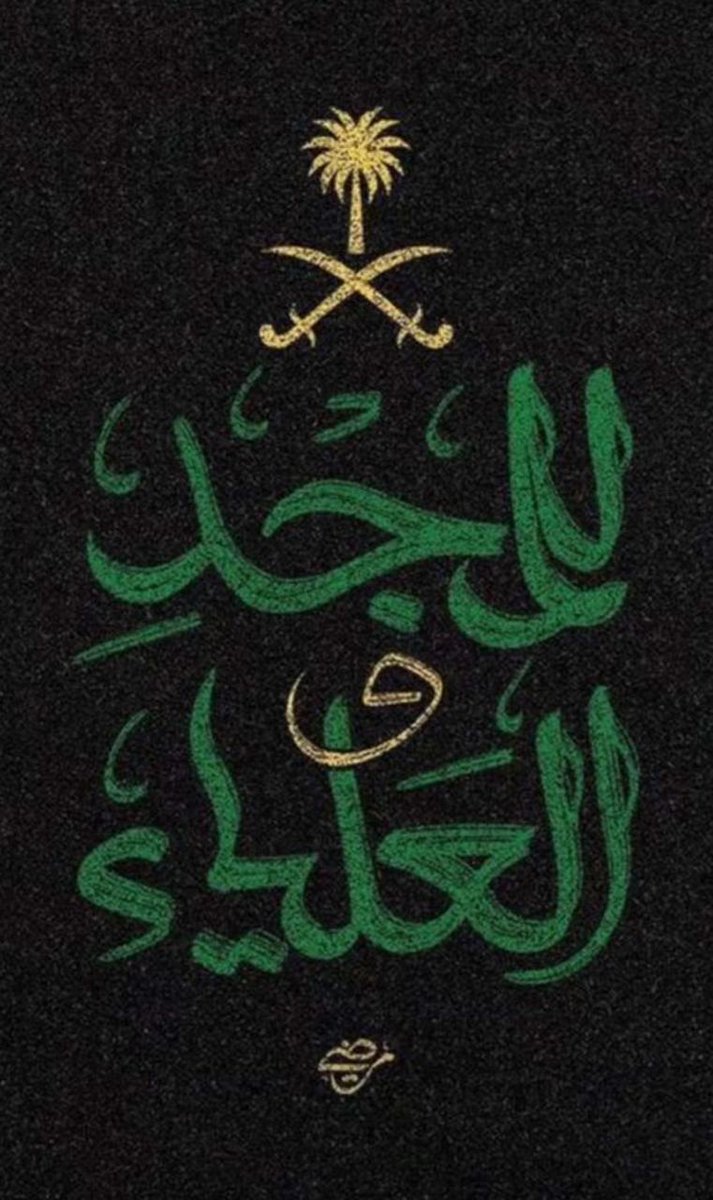 للمَجْدِ
و
العَلياء